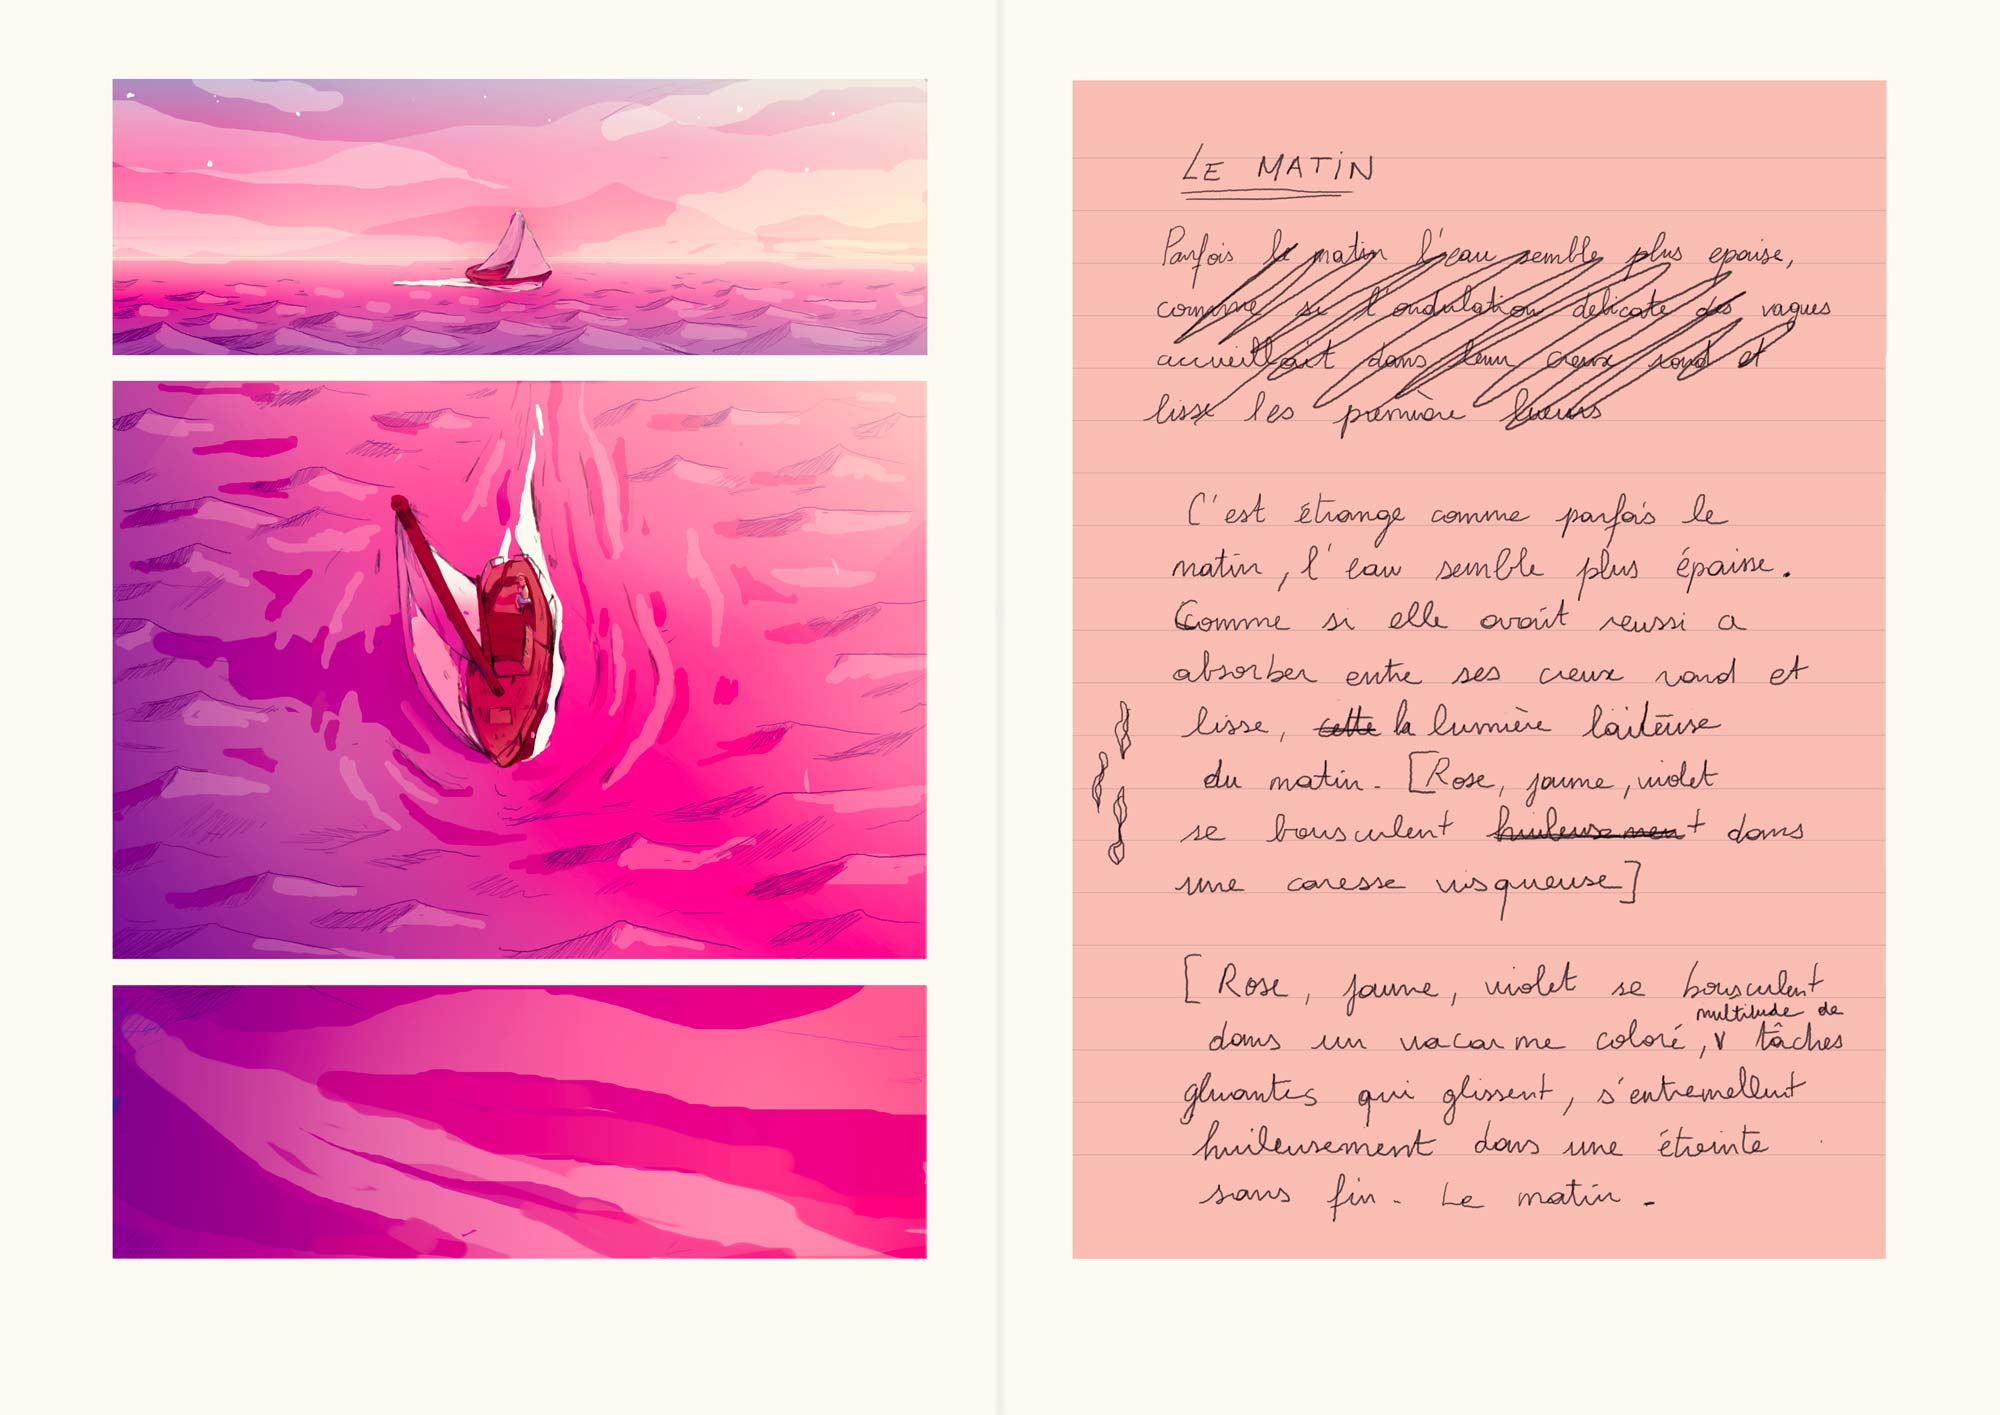 LE MATIN
Parfois le matin l'eau semble plus epaise,
comme si l'ondulation délicate des vagues
accueillait dans leur creux rond et
lisse les première lueurs
C'est étrange comme parfois le
matin, l'eau semble plus épaisse.
Comme si elle avait reussi a
absorber entre ses creux rond et
lisse, cette la lumière laiteuse
du matin. [Rose, jaune, violet
se bousculent huileusement dans
une caresse visqueuse]
[Rose, jaune, violet se bousculent
multitude de
dans un vacarme coloré, v tâches
gluantes qui glissent, s'entremellent
huileusement dans une étreinte
sans fin. Le matin.